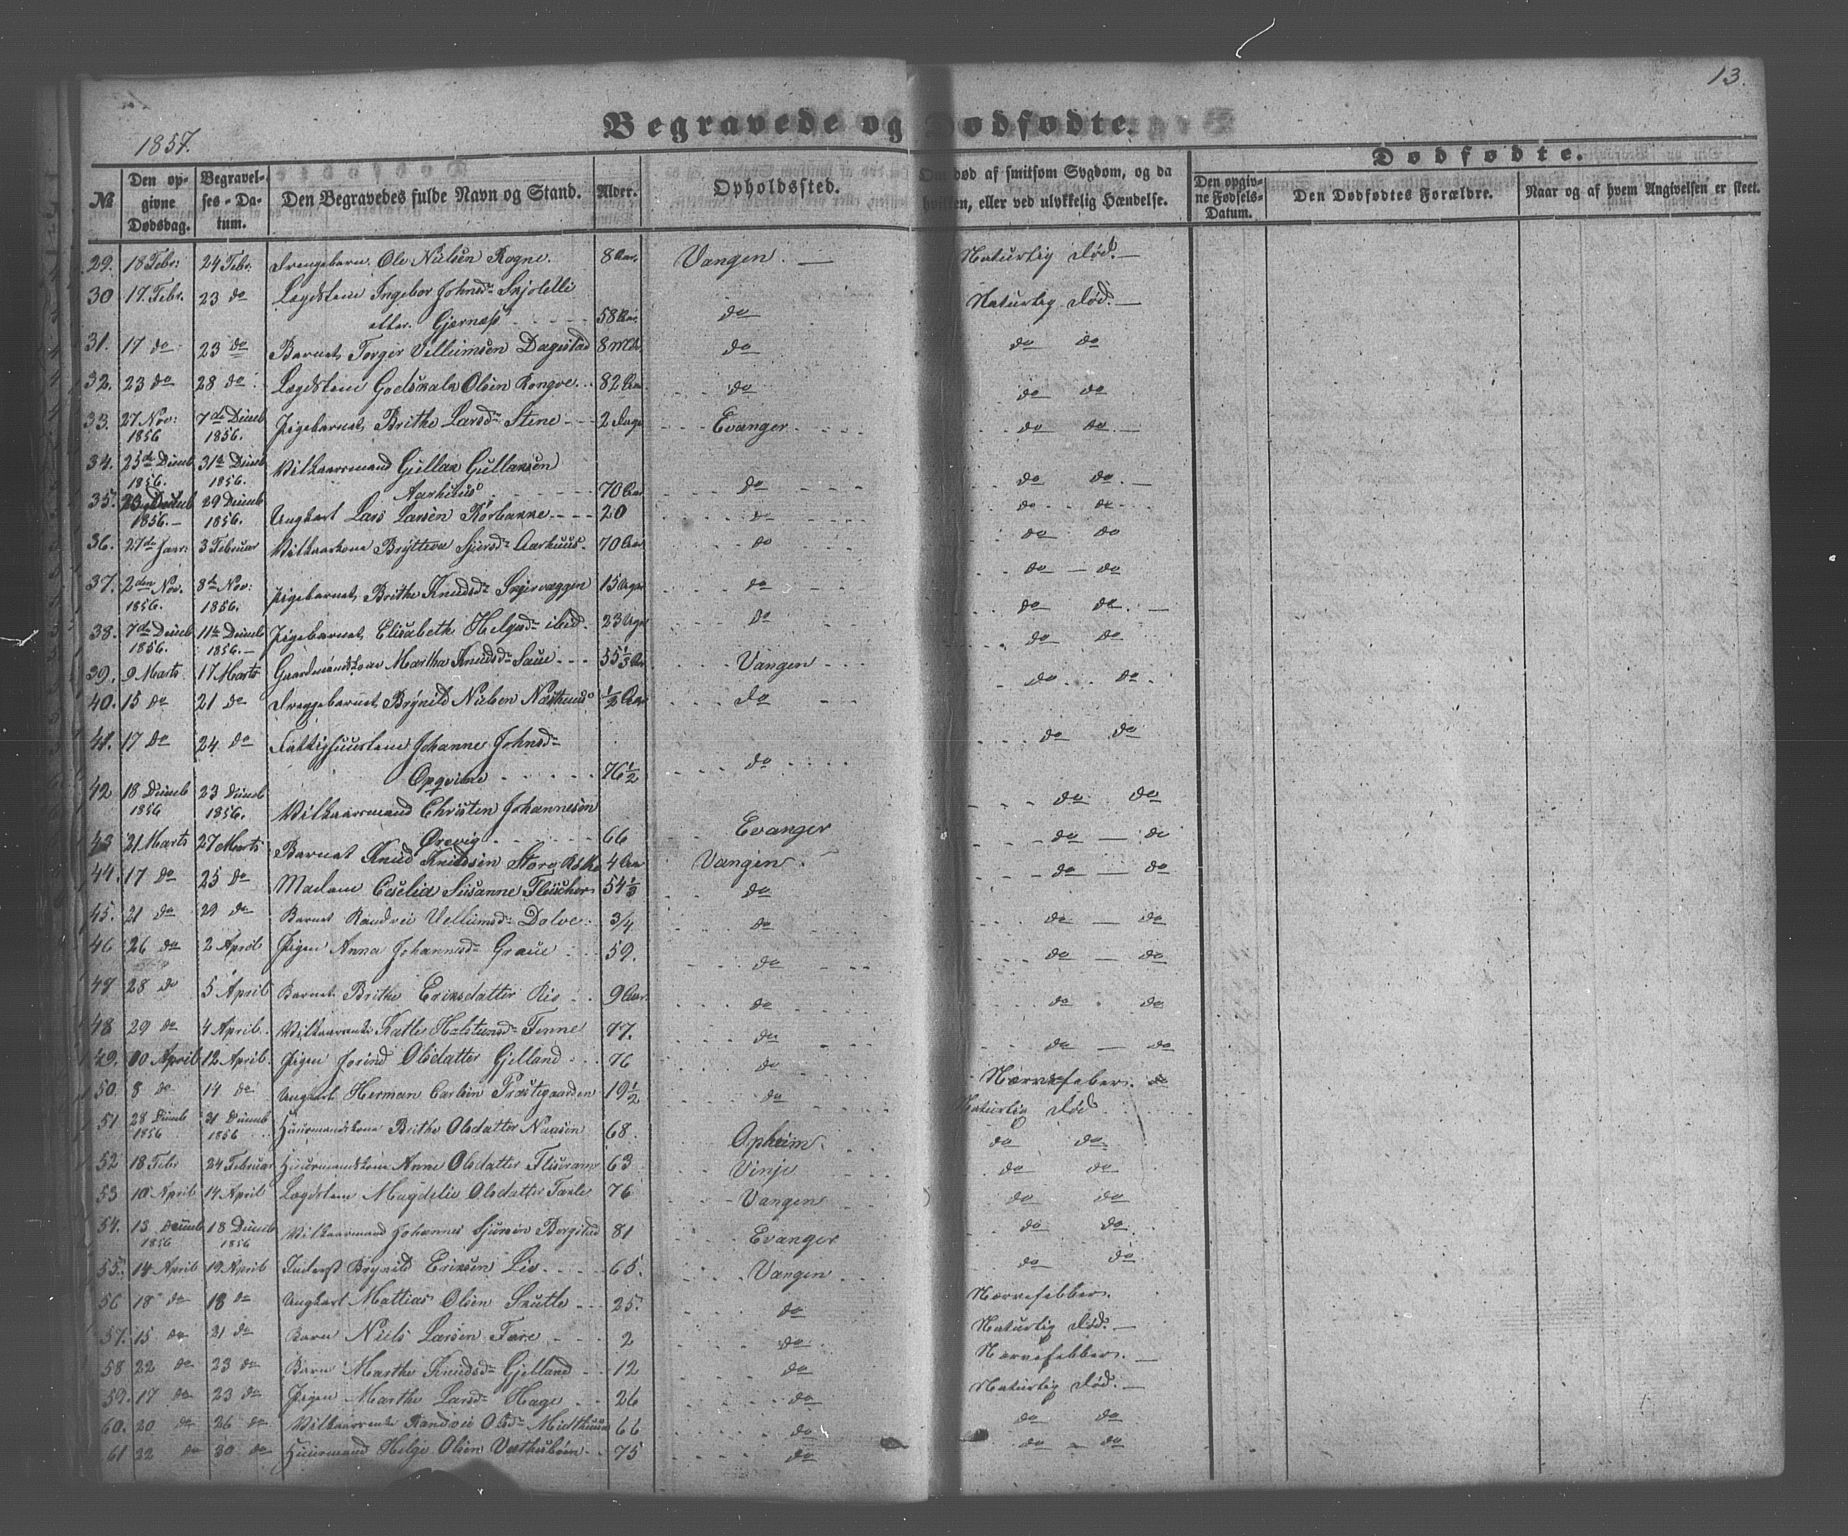 13.
1857.
Begravede og Dødfødte.
Dødfødte.
№ Den opgivne Dødsdag. Begravelses-Datum. Den Begravedes fulde Navn og Stand. Alder. Opholdssted. Om død af smitsom Sygdom, og da hvilken, eller ved ulykkelig Hændelse. Den opgivne Fødsels-Datum. Den Dødfødtes Forældre. Naar og af hvem Angivelsen er skeet.
29. 18 Febr: 24 Febr. Drengebarn Ole Nielsen Rogne. 8 Aar. Vangen. — Naturlig Død. —
30 17. Febr. 23 do Lægdslem Ingebor Johnsd:
eller. Gjernæs 58 Aar. do Naturlig Død. —
31. 17 do 23 do Barnet Torger Villumsen Dagestad 8 Mdr do do do
32. 23 do 28 do Lægdslem Godskalk Olsen Rongve 82 Aar. do do do
33. 27 Nov: 1856 7de Decmb 1856. Pigebarnet Brithe Larsd: Stene 2 Dage Evanger do do. —
34. 25de Decmb 1856. 31te Decmb 1856. Vilkaarsmand Gullak Gullaksen
Aarhuus 70 Aar do do do. —
35. 23 Decmb 1856. 29 Decmb 1856. Ungkarl Lars Larsen 20 do do do.
36. 27de Janr: 3 Februar Vilkaarkone Brytteva Sjursd: Aarhuus. 70 Aar do do do
37. 2den Nov. 1856. 8de Nov: 1856. Pigebarnet Brithe Knudsd: 15 Uger do do — do
38. 7de Decmb 1856. 11te Decmb 1856. Pigebarnet Elisabeth Helgesd: ibid. 23 Uger do do do. —
39. 9 Marts 17. Marts Gaardmandskone Martha Knudsd: Saue 55 1/3 Aar Vangen do do
40. 15 do 21 do Drengebarnet Brynild Nielsen 1/2 Aar do do do.
41. 17 do 24 do Fattighuuslem Johanne Johnsd:
Opqvitne 76 1/2 do do do
42 18 Decmb 1856 23 Decmb 1856. Vilkaarsmand Christen Johannesen
Ørevig 66 Evanger do do
43 21 Marts 27 Marts Barnet Knud Knudsen Store 4 Aar Vangen. do — do
44. 17 do 25 do Madam Susanne Fleischer 54 1/3 do do — do
45. 21 do 29 do Barnet Randvei Vellumsd: Dolve 3/4 do do — do
46 26 do 2 April Pigen Anna Johannesd: Graue 59. do do — do
47 28 do 5 April Barnet Brithe Eriksdatter 9 Aar. do do do
48 29 do 4 April. Vilkaarenke Halstensd: Finne 77. do do — do
49. 10 April 12 April. Pigen Jorind Olsdatter Gjelland 76 do
50. 8 do 14 do Ungkarl Herman Carlsen Præstegaarden 19 1/2 do Nervefeber.
51 28 Decmb 1856 31 Decmb 1856 Huusmandskone Brithe Olsdatter 68. Opheim Naturlig Død
52 18 Febr 24 Februar Huusmandskone Anne Olsdatter 63 Vinje do do
53 10 April 14 April Lægdslem Magdelie Olsdatter 76 Vangen do do
54. 13 Decmb 1856 18 Decmb 1856 Vilkaarsmand Johannes Sjursen Bergstad 81 Evanger do do
55. 14 April 19 April Inderst Brynild Eriksen 65. Vangen do do
56 18 do 18 do Ungkarl Mattias Olsen Skutle 25. do Nervefebber.
57. 15 do 21 do Barn Niels Larsen 2 do Naturlig Død. —
58 22 do 23 do Barn Marthe Knudsd: Gjelland 12 do Nervefebber. —
59. 17 do 23 do Pigen Marthe Larsd: Hage 26 do Naturlig Død. —
60. 20 do 26 do Vilkaarenke Randvei Olsd: 66 do do do
61 22 do 30 do Huusmand Helge Olsen 75 do do do